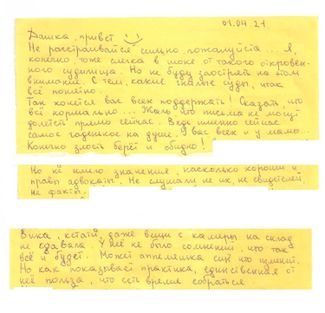 01.04.21
Дашка, привет
Не расстраивайся сильно, пожалуйста... Я,
конечно, тоже слегка в шоке от такого откровен-
ного судилища. Но не буду заострять на этом
внимание. С тем, какие судьи, итак
всё понятно.
Так хочется вас всех поддержать! Сказать что
всё нормально... Жаль, что письма не могут
долететь прямо сейчас. Ведь именно сейчас
самое гаденькое на душе. У вас всех и у мамы.
Конечно злость берёт и обидно!
Но не имело значения, насколько хороши и
правы адвокаты. Не слушали ни их, ни свидетелей,
ни факты.
Вика, кстати, даже вещи с камеры на склад
не сдавала. У неё не было сомнений, что так
всё и будет. Может аппеляшка ещё что изменит.
Но как показывает практика, единственная от
неё польза, что есть время собраться.